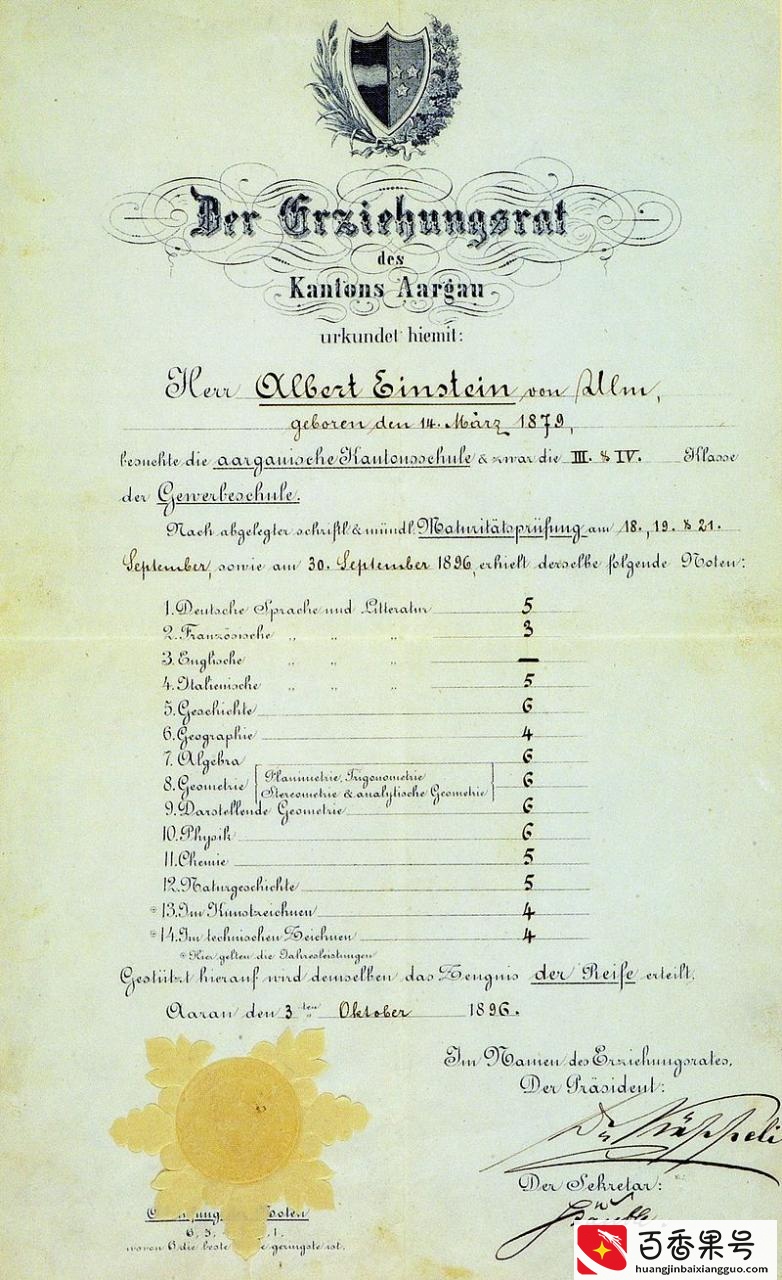 Der Erziehungsrat
des
Kantons Aargau
urkundet hiemit:
Herr Albert Einstein von Ulm,
geboren den 14. März 1879,
besuchte die aargauische Kantonsschule & zwar die III. & IV. Klasse
der Gewerbeschule.
Nach abgelegter schriftl. & mündl. Maturitätsprüfung am 18., 19. & 21.
September, sowie am 30. September 1896, erhielt derselbe folgende Noten:
1. Deutsche Sprache und Litteratur 5
2. Französische „ „ „ 3
3. Englische „ „ „ —
4. Italienische „ „ „ 5
5. Geschichte 6
6. Geographie 4
7. Algebra 6
8. Geometrie [Planimetrie, Trigonometrie
Stereometrie & analytische Geometrie] 6
9. Darstellende Geometrie 6
10. Physik 6
11. Chemie 5
12. Naturgeschichte 5
* 13. Im Kunstzeichnen 4
* 14. Im technischen Zeichnen 4
* Hier gelten die Jahresleistungen
Gestützt hierauf wird demselben das Zeugnis der Reife erteilt.
Aarau den 3ten Oktober 1896.
Im Namen des Erziehungsrates,
Der Präsident:
Dr Käppeli
Der Sekretär:
Noten
6, 5, 1.
wovon 6 die beste geringste ist.
百香果号
huangjinbaixiangguo.com